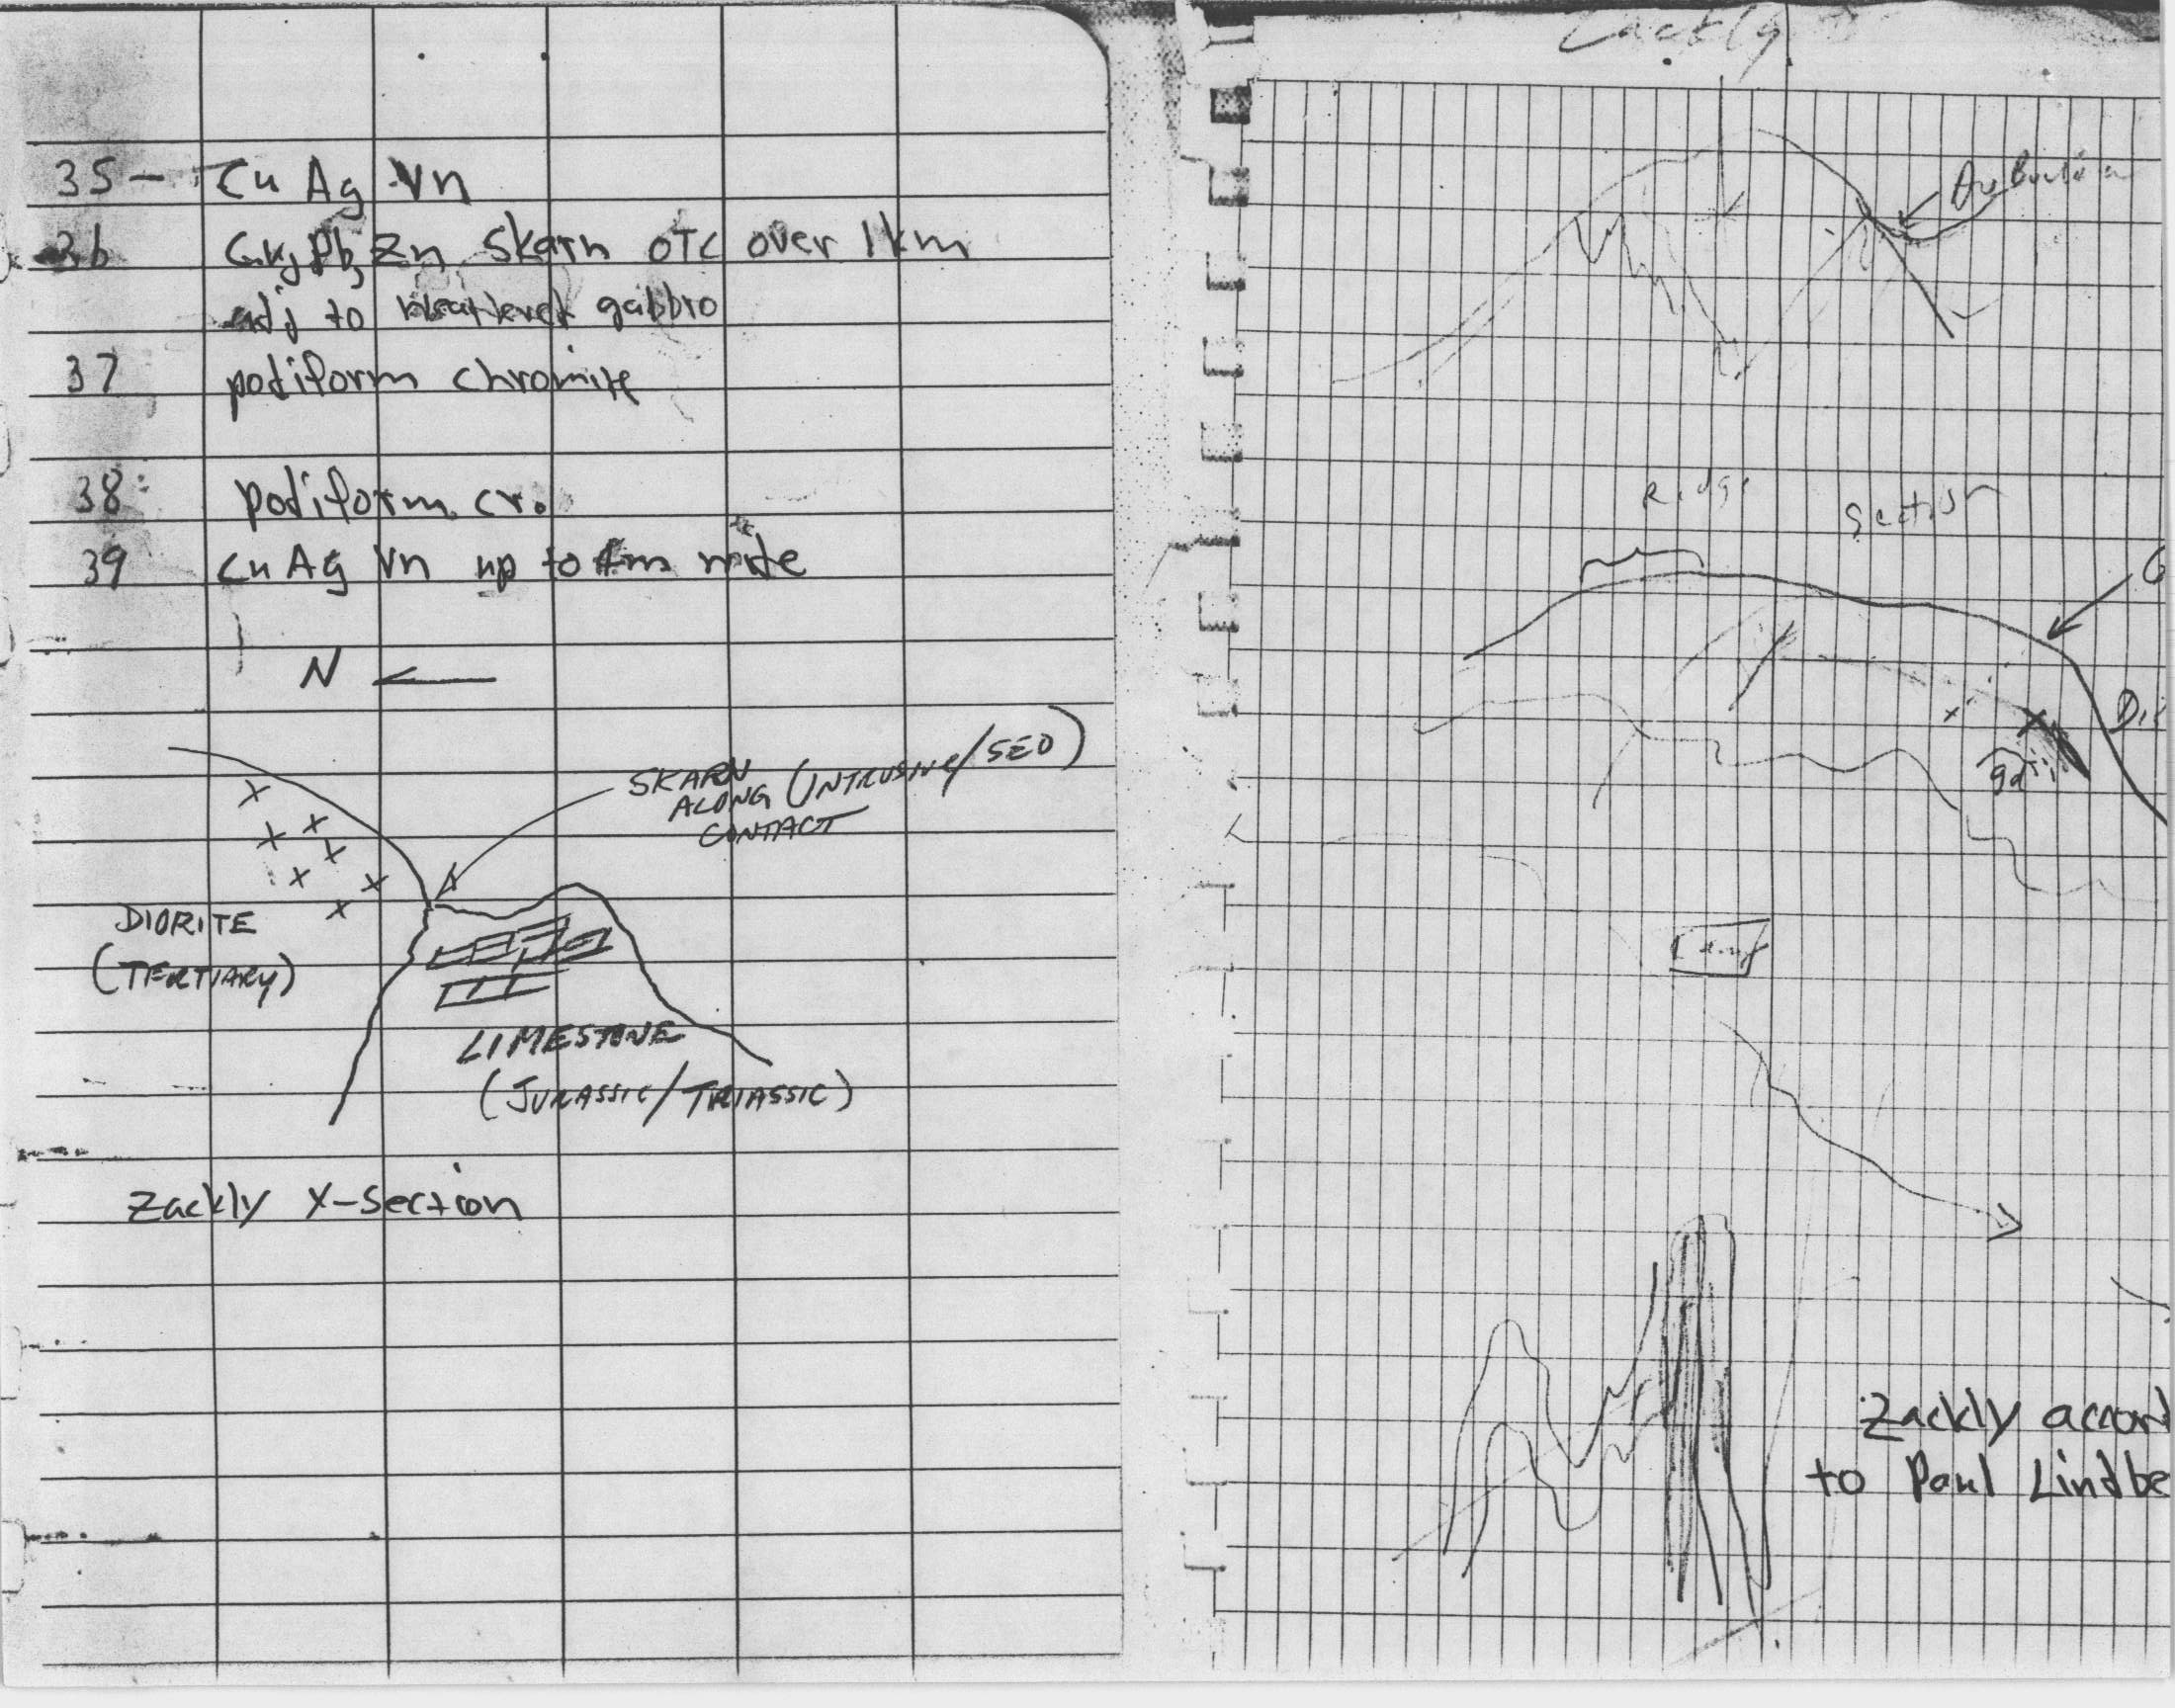 35 - Cu Ag Vn
36 Cu, Pb, Zn Skarn otc over 1km
adj to gabbro
37 podiform chromite
38 podiform cr.
39 Cu Ag Vn up to wide
N
SKARN
ALONG (INTRUSIVE/SED)
CONTACT
DIORITE
(TERTIARY)
LIMESTONE
(JURASSIC/TRIASSIC)
Zackly X-Section
Zackly
Au
Ridge
Section
G
Di
Camp
Zackly accord
to Paul Lindbe